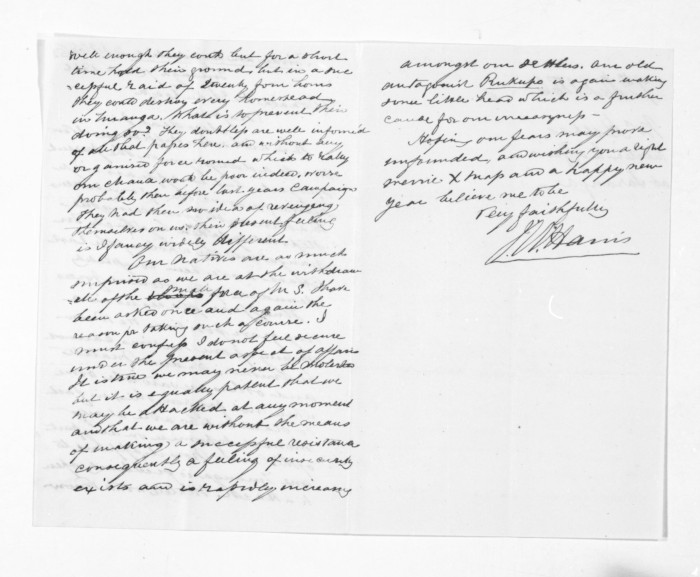 well enough they could but for a short
time hold their ground, but in a suc
-cessful raid of twenty four hours
they could destroy every homestead
in Turanga. What is to prevent their
doing so? They doubtless are well inform'd
of all that passes here. and without any
organised force round which to rally
our chance would be poor indeed, worse
probably than before last years Campaign
They had then no ideas of revenging
themselves on us, their present feeling
is I fancy widely different
Our Natives are as much
surprised as we are at the withdraw
-all of the small force of M. S. I have
been asked once and again the
reason for taking such a course. I
must confess I do not feel secure
under the present aspect of affairs
It is true we may never be molested
but it is equally patent that we
may be attacked at any moment
and that we are without the means
of making a successful resistance
consequently a feeling of insecurity
exists and is rapidly increasing
amongst our settlers. our old
antagonist Rukupo is again making
some little head which is a further
cause for our uneasyness -
Hoping our fears may prove
unfounded, and wishing you a right
merrie Xmas and a happy new
year believe me to be
Very faithfully
J. W. Harris